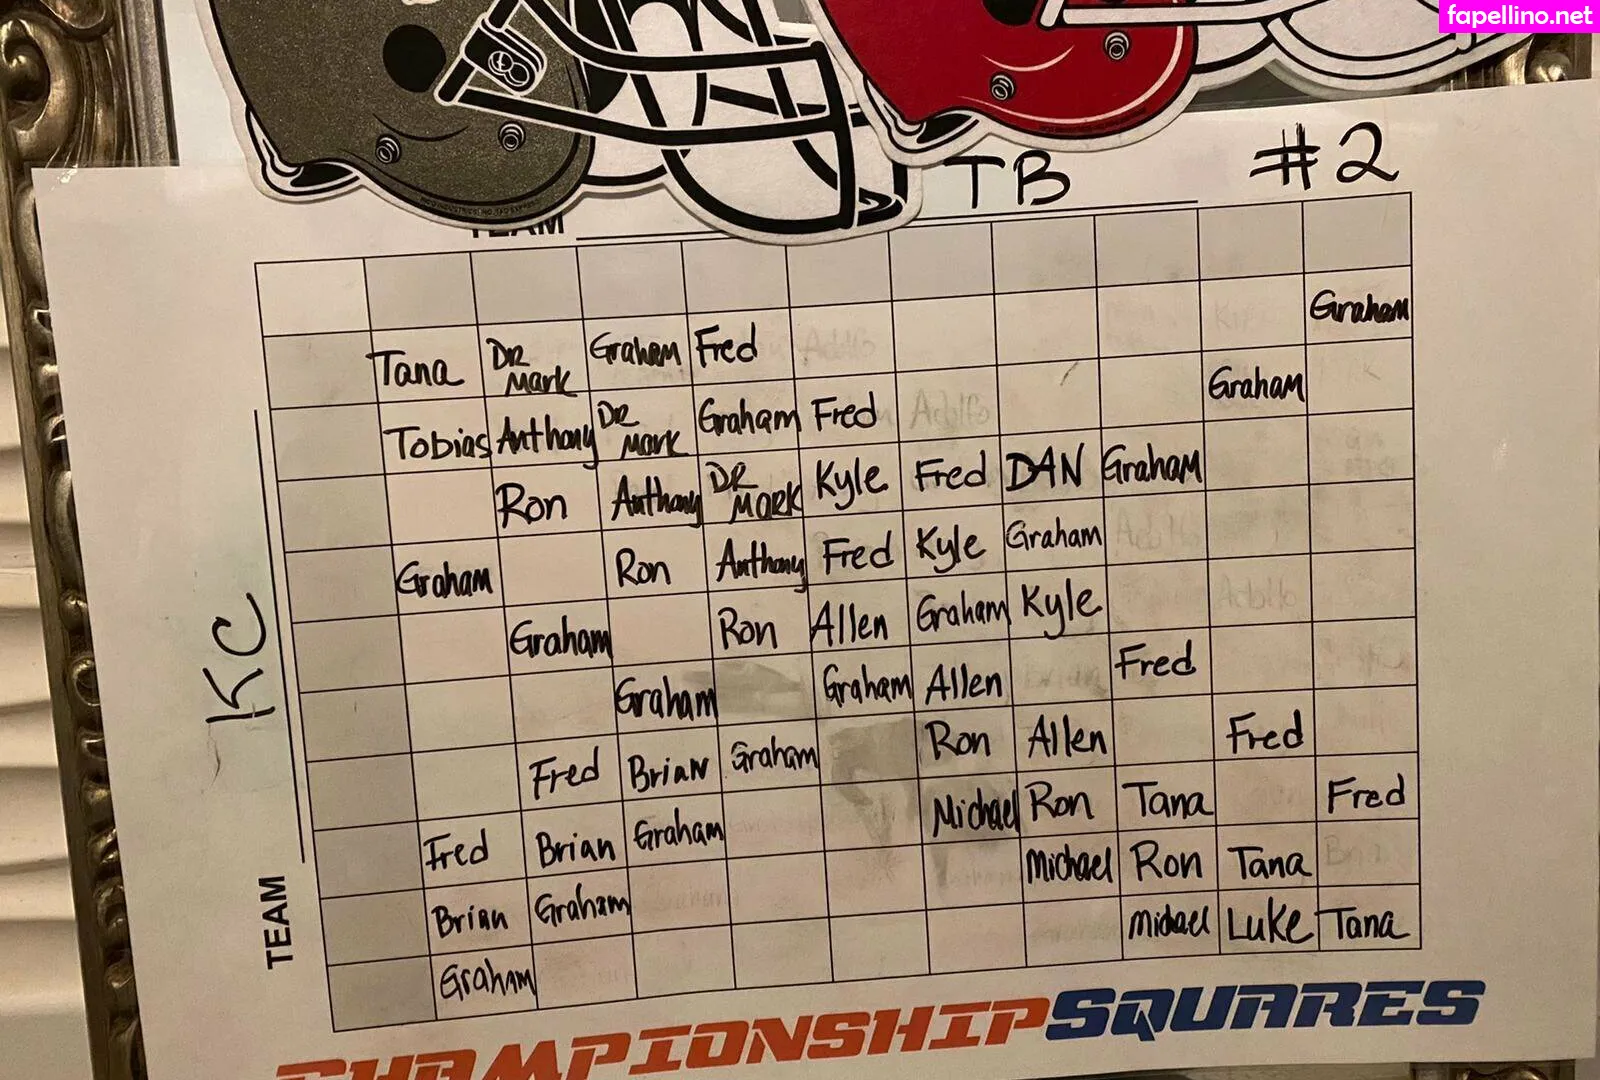 fapellino.net
TB #2
TEAM
Graham
Tana DR Mark Graham Fred
Graham
Tobias Anthony DR Mark Graham Fred
Ron Anthony DR MARK Kyle Fred DAN Graham
Graham Ron Anthony Fred Kyle Graham
Graham Ron Allen Graham Kyle
Graham Graham Allen Fred
Fred Brian Graham Ron Allen Fred
Fred Brian Graham Michael Ron Tana Fred
Brian Graham Michael Ron Tana
Graham Michael Luke Tana
KC
TEAM
CHAMPIONSHIPSQUARES